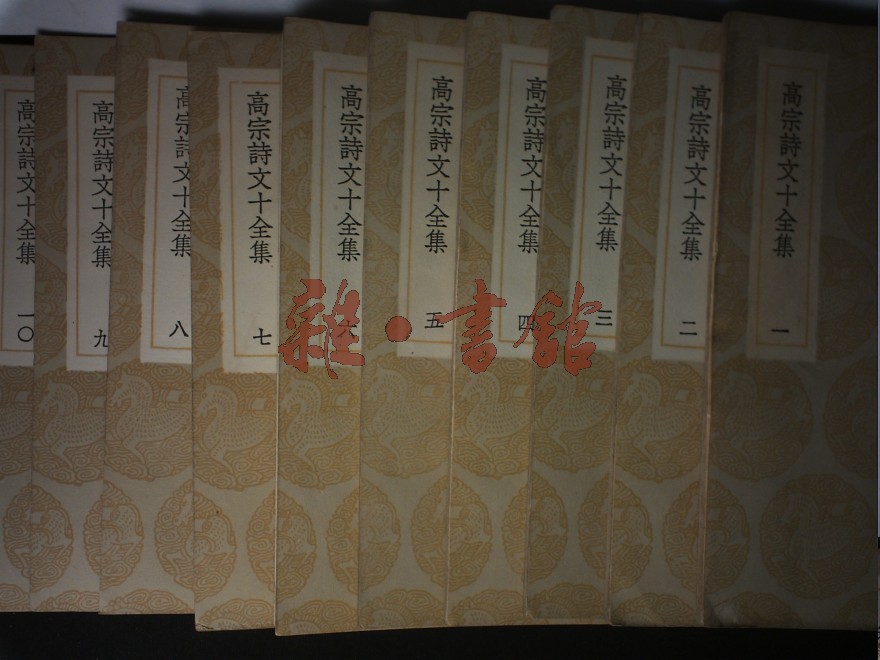 高宗詩文十全集 一
高宗詩文十全集 二
高宗詩文十全集 三
高宗詩文十全集 四
高宗詩文十全集 五
高宗詩文十全集
高宗詩文十全集 七
高宗詩文十全集 八
高宗詩文十全集 九
高宗詩文十全集 一〇
雜·書館